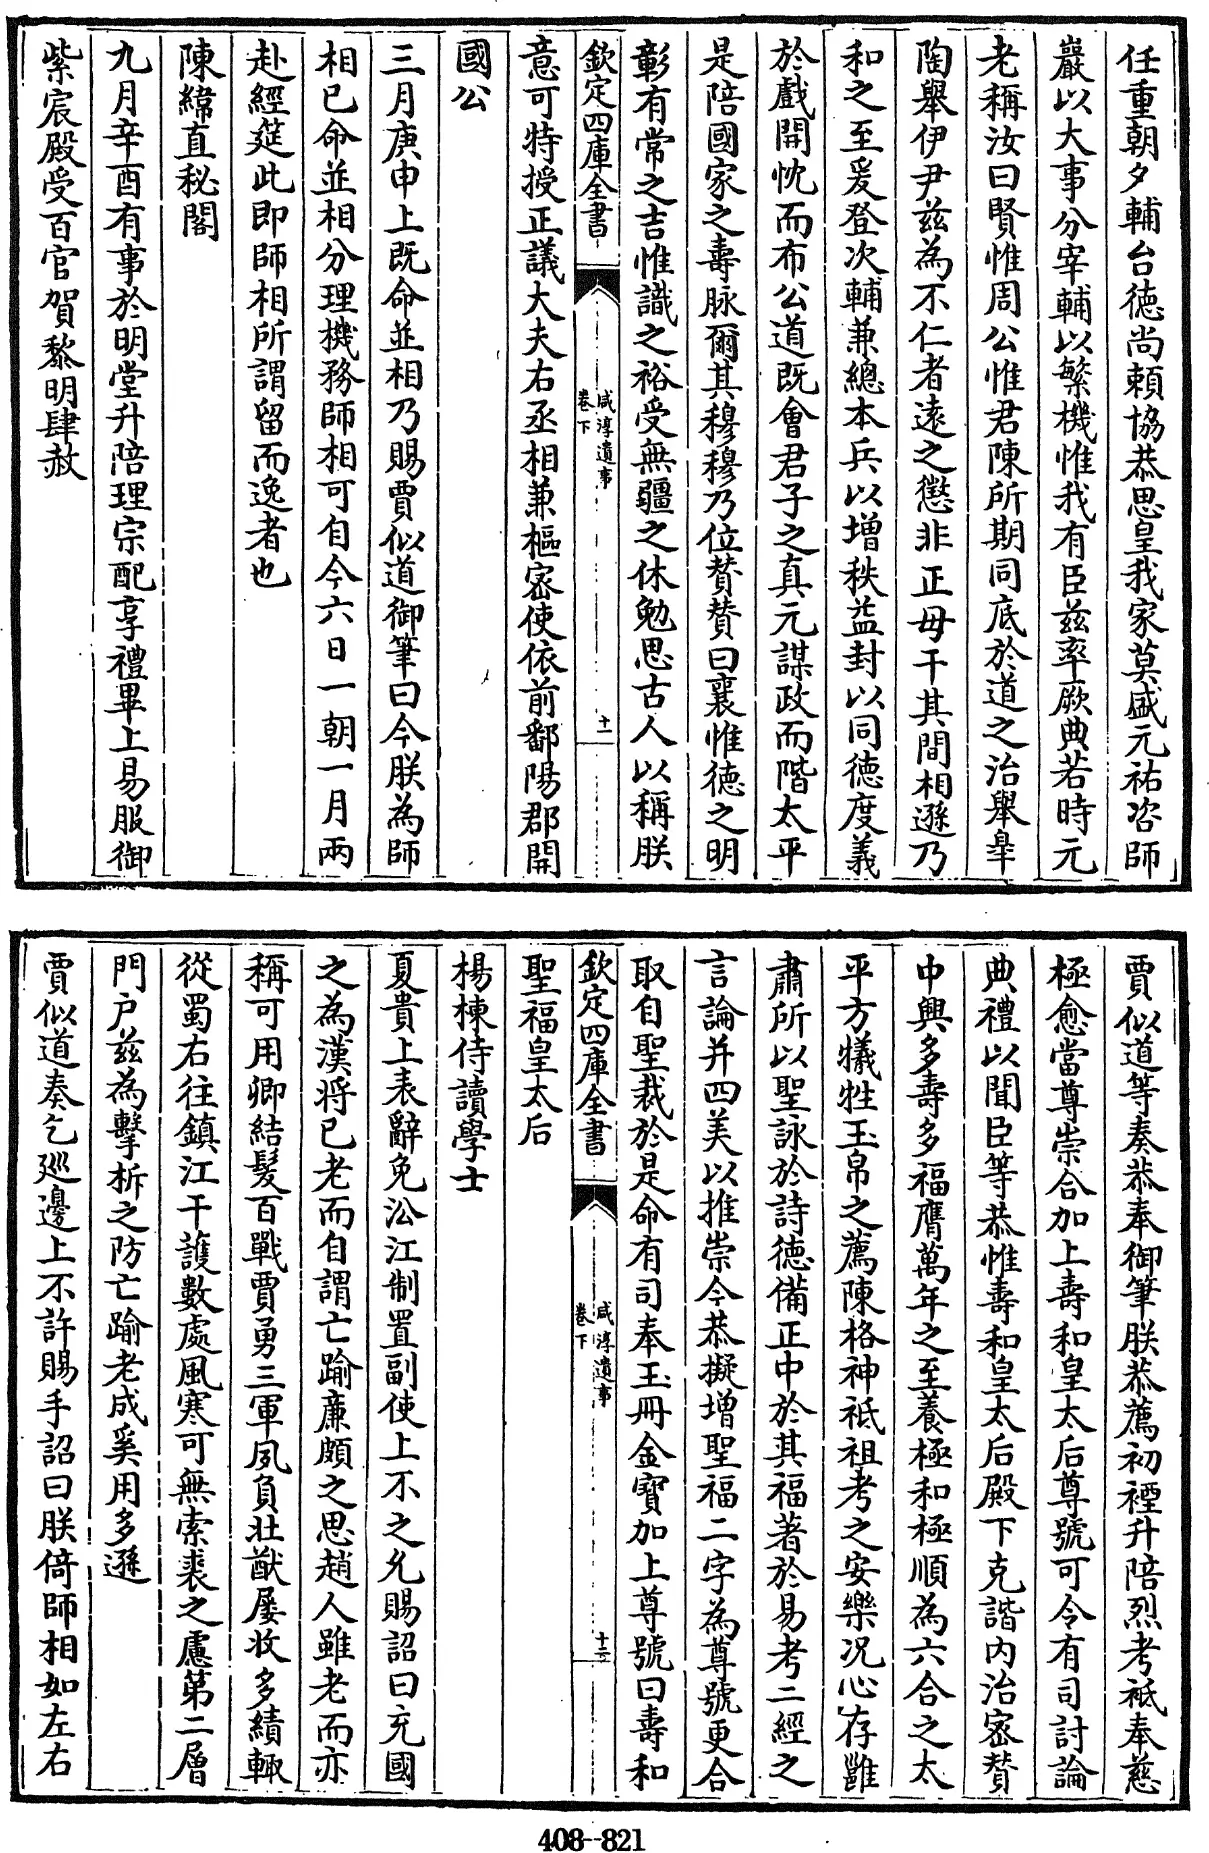 任重朝夕輔台徳尚頼協恭思皇我家莫盛元祐咨師
嚴以大事分宰輔以繁機惟我有臣兹率厥典若時元
老稱汝曰賢惟周公惟君陳所期同底於道之治舉臯
陶舉伊尹兹為不仁者逺之懲非正毋干其間相遜乃
和之至爰登次輔兼總本兵以增秩益封以同徳度義
於戲開忱而布公道既會君子之真元謀政而階太平
是陪國家之壽脉爾其穆穆乃位賛賛曰襄惟徳之明
彰有常之吉惟識之裕受無疆之休勉思古人以稱朕
欽定四庫全書
咸淳遺事
卷下
十一
意可特授正議大夫右丞相兼樞宻使依前鄱陽郡開
國公
三月庚申上既命並相乃賜賈似道御筆曰今朕為師
相已命並相分理機務師相可自今六日一朝一月兩
赴經筵此即師相所謂留而逸者也
陳緯直秘閣
九月辛酉有事於明堂升陪理宗配享禮畢上易服御
紫宸殿受百官賀黎明肆赦
賈似道等奏恭奉御筆朕恭薦初禋升陪烈考祗奉慈
極愈當尊崇合加上壽和皇太后尊號可令有司討論
典禮以聞臣等恭惟壽和皇太后殿下克諧内治宻賛
中興多壽多福膺萬年之至養極和極順為六合之太
平方犧牲玉帛之薦陳格神祗祖考之安樂况心存雝
肅所以聖詠於詩徳備正中於其福著於易考二經之
言論并四美以推崇今恭擬增聖福二字為尊號更合
取自聖裁於是命有司奉玉冊金寳加上尊號曰壽和
欽定四庫全書
咸淳遺事
卷下
十二
聖福皇太后
楊棟侍讀學士
夏貴上表辭免㳂江制置副使上不之允賜詔曰充國
之為漢将已老而自謂亡踰亷頗之思趙人雖老而亦
稱可用卿結髪百戰賈勇三軍夙負壮猷屡收多績輙
從蜀右往鎮江干䕶數處風寒可無索裘之慮第二層
門户兹為擊柝之防亡踰老成奚用多遜
賈似道奏乞廵邊上不許賜手詔曰朕倚師相如左右
408-821